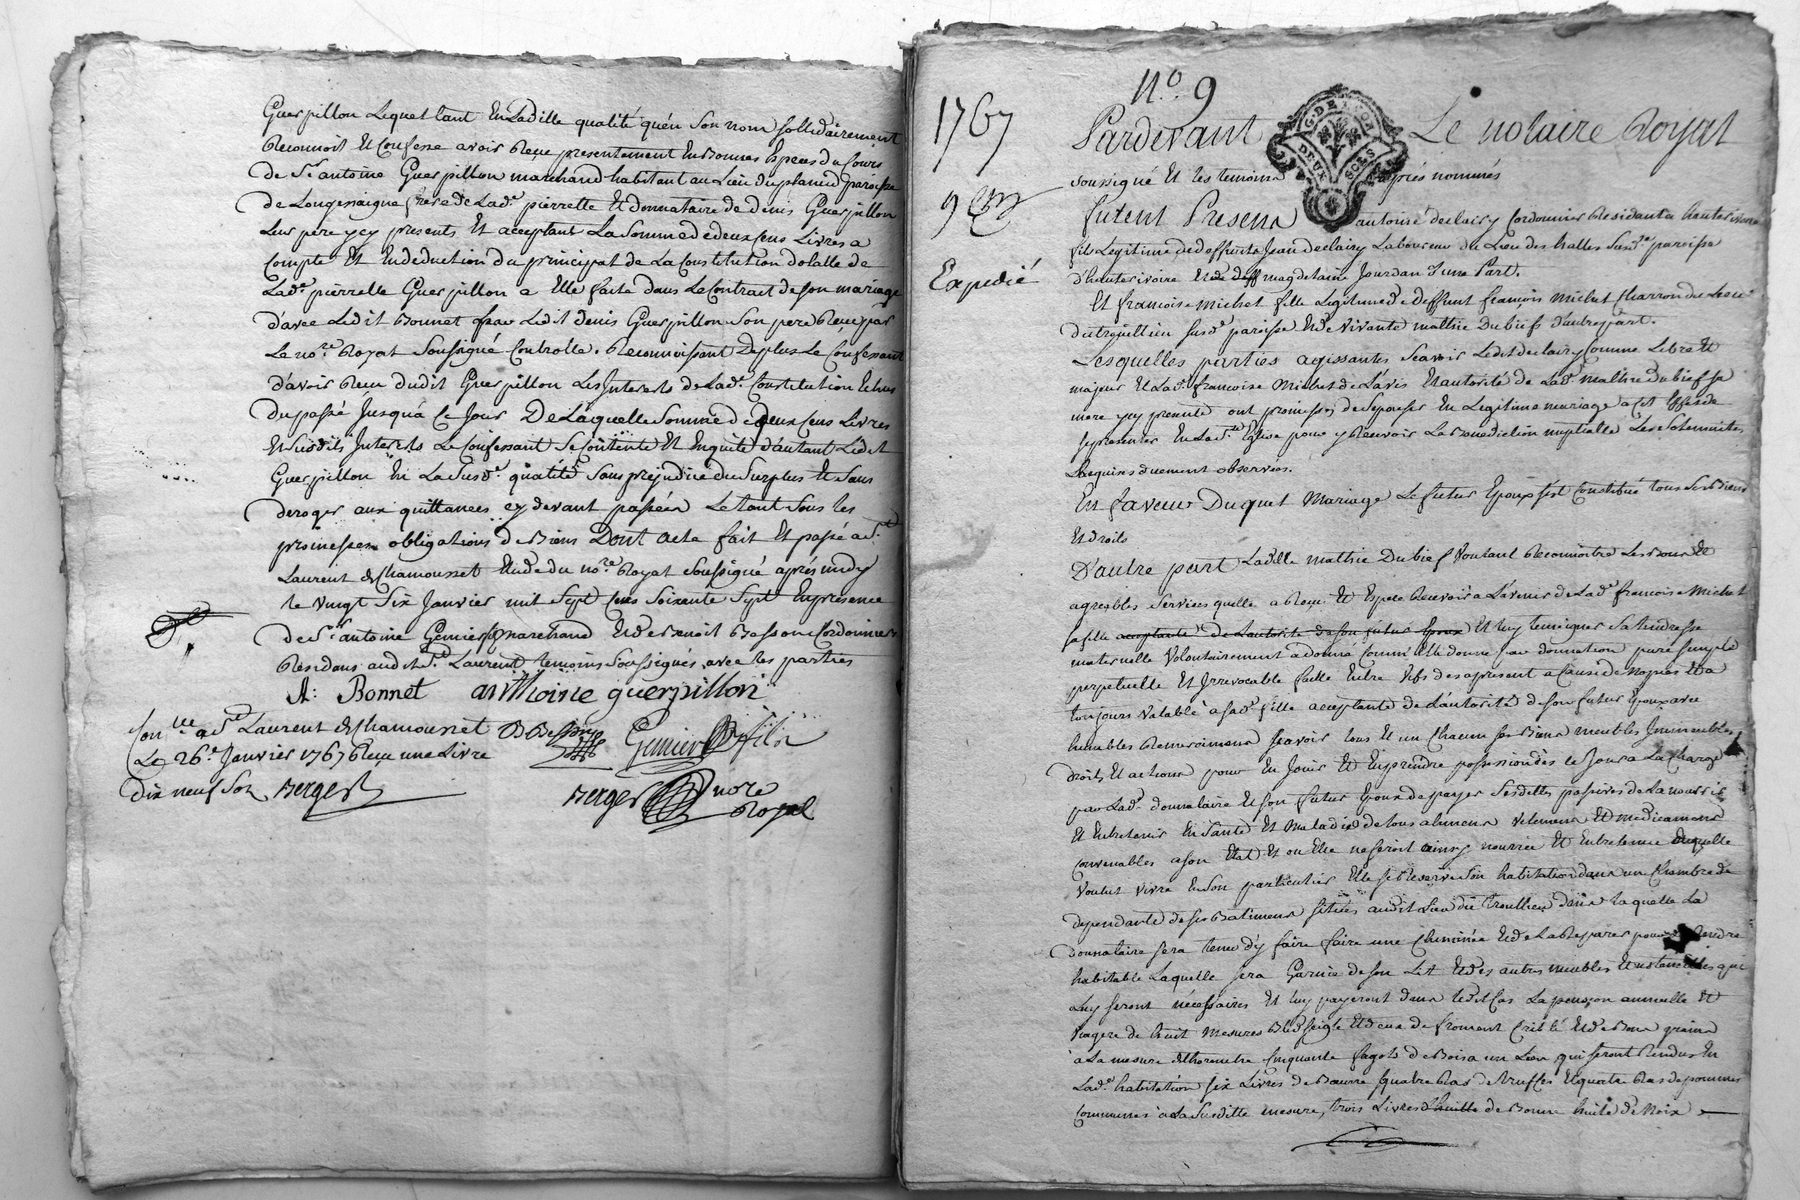 Guerpillon Lequel tant En Ladille qualité qu'en Son nom sollidairement
Reconnoit Et Confesse avoir Reçu presentement En Bonnes Espèces du Cours
de Sr antoine Guerpillon marchand habitant au Lieu du planud paroisse
de Longessaigne frere de Lade pierrette Et donnataire de denis Guerpillon
Leur pere ycy presents Et acceptant La Somme de deux Cens Livres a
Compte Et En deduction du principal de La Constitution dotalle de
Lade pierrette Guerpillon a Elle faite dans Le Contrat de son mariage
d'avec Ledit Bonnet par Ledit denis Guerpillon Son pere Reçu par
Le nore Royal Soussigné Controllé. Reconnoissant De plus Le Confessant
d'avoir Reçu dudit Guerpillon Les Interets de Lade Constitution Echus
du passé Jusqu'à Ce Jour De Laquelle Somme de deux Cens Livres
Et Susdits Interets Le Confessant Se Contente Et En quitte d'autant Ledit
Guerpillon En La Susde qualité Sans prejudice du Surplus Et Sans
deroger aux quittances cy devant passées Le tout Sous les
promesses obligations de Biens Dont acte fait Et passé a St
Laurent de Chamousset Etude du nore Royal Soussigné après midy
le vingt Six Janvier mil Sept Cens Soixante Sept En presence
de Sr antoine Gemier marchand Et de Benoit Basson Cordonnier
Residans audit St Laurent temoins Soussignés avec les parties
A: Bonnet anthoine guerpillon
Conlle a St Laurent de Chamousset B Basson Gemier fils
Le 26e Janvier 1767 Reçu une Livre
dix neuf Sols Berger Berger nore
Royal
No. 9
1767
Pardevant Le notaire Royal
G. DE LYON
DEUX SOLS
soussigné Et les temoins après nommés
9
furent Presens antoine declairy Cordonnier Residant a hauterivoire
fils Legitime de deffunts Jean declairy Laboureur du Lieu des halles Susde paroisse
Expedié
d'hauterivoire Et de magdelaine Jourdan d'une Part.
Et françoise Michel fille Legitime de deffunt françois Michel Charron du Lieu
du trouillieu susde paroisse Et de vivante mathie Dubief d'autre part.
Lesquelles parties agissantes Scavoir Ledit declairy Comme Libre Et
majeur Et Lade françoise Michel de L'avis Et autorité de Lade mathie Dubief sa
mere ycy presente ont promis de S'epouser En Legitime mariage a Cet Effet de
se presenter En La Ste Eglise pour y Recevoir La Benediction nuptialle Les Solemnites
Requises duement observées.
En faveur Duquel Mariage Le futur Epoux s'est Constitué tous Ses Biens
Et droits
D'autre part Laditte mathie Dubief Voulant Reconnoitre Les Bons Et
agreables Services quelle a Reçu Et Espere Recevoir a L'avenir de Lade françoise Michel
sa fille acceptante de L'autorité de son futur Epoux Et luy temoigner Sa tendresse
maternelle Volontairement a donné Comm'elle donne par donnation pure simple
perpetuelle Et Irrevocable faitte Entre Vifs des apresent a Cause de Nopces Et a
toujours Valable a Sade fille acceptante de L'autorité de son futur Epoux avec
humbles Remerciemens scavoir tous Et un Chacun ses Biens meubles Immeubles
droits Et actions pour En Jouir Et En prendre possession dès Ce Jour a La Charge
par Lade donnataire Et son futur Epoux de payer Ses dettes passives de La nourrir
Et Entretenir En Santé Et Maladie de tous alimens vetemens Et médicamens
convenables a son Etat Et ou Elle ne seroit ainsy nourrie Et Entretenue
Voulut vivre En Son particulier Elle se Reserve Son habitation dans un Chambre
dependante de ses Batimens situés audit Lieu du Trouillieu dans laquelle La
donnataire sera tenu d'y faire faire une Cheminée Et de La Reparer pour Rendre
habitable Laquelle sera Garnie de son Lit Et des autres meubles Et ustencilles qui
Luy seront nécessaires Et luy payeront dans Ledit Cas La pension annuelle Et
viagere de huit mesures Bled seigle Et deux de froment Criblé Et de Bon grain
a La mesure de Cinquante fagots de Bois un qui seront Rendus En
Lade habitation six Livres de Beurre quatre Ras de truffes Et quatre Ras de pommes
Communes a La Susditte mesure, trois Livres d'huille de Bonne huile de Noix